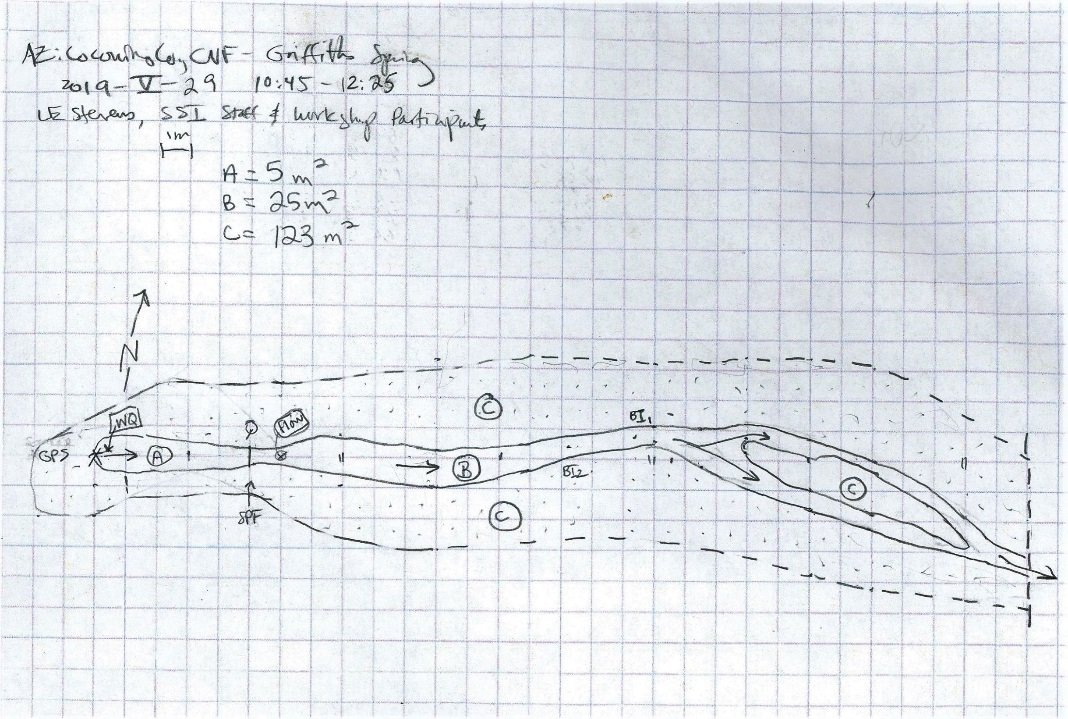 AZ: Coconino Co, CNF - Griffiths Spring
2019-V-29 10:45-12:25
LE Stevens, SSI Staff & Workshop Participants
1m
A = 5 m²
B = 25 m²
C = 123 m²
N
C
BI1
WQ
Flow
GPS
A
B
BI2
C
SPF
C